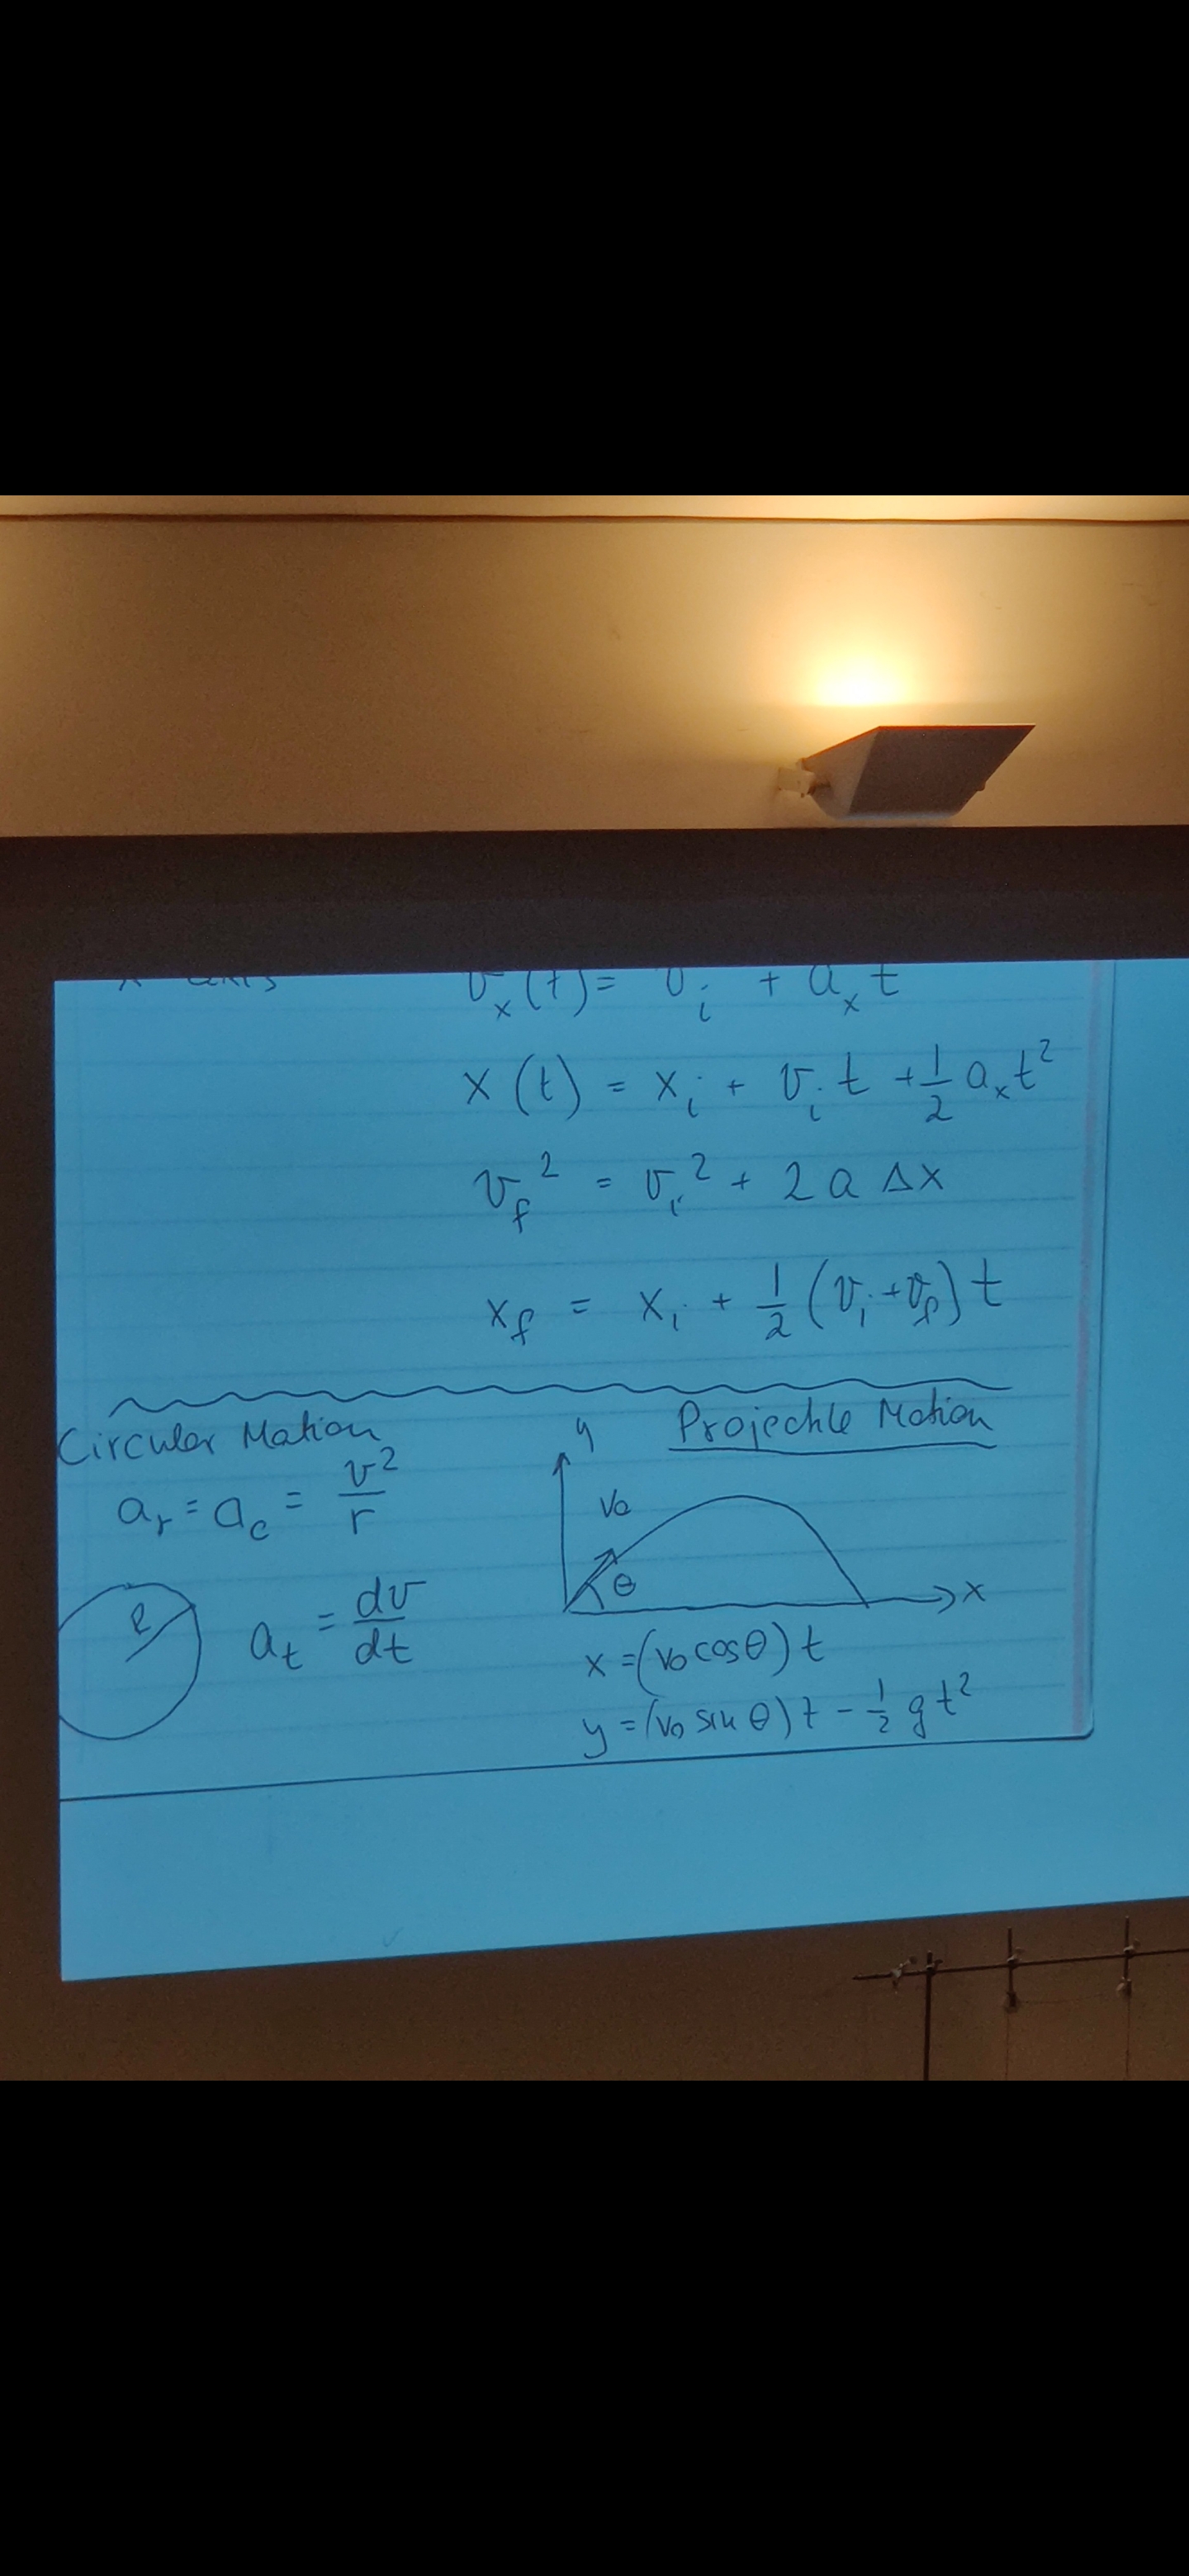 x axis
v_x (t) = v_i + a_x t
x (t) = x_i + v_i t + 1/2 a_x t²
v_f² = v_i² + 2 a Δx
x_f = x_i + 1/2 (v_i + v_f) t
Circular Motion
a_r = a_c = v²/r
R
a_t = dv/dt
Projectile Motion
y
v₀
θ
x
x = (v₀ cosθ) t
y = (v₀ sin θ) t - 1/2 g t²